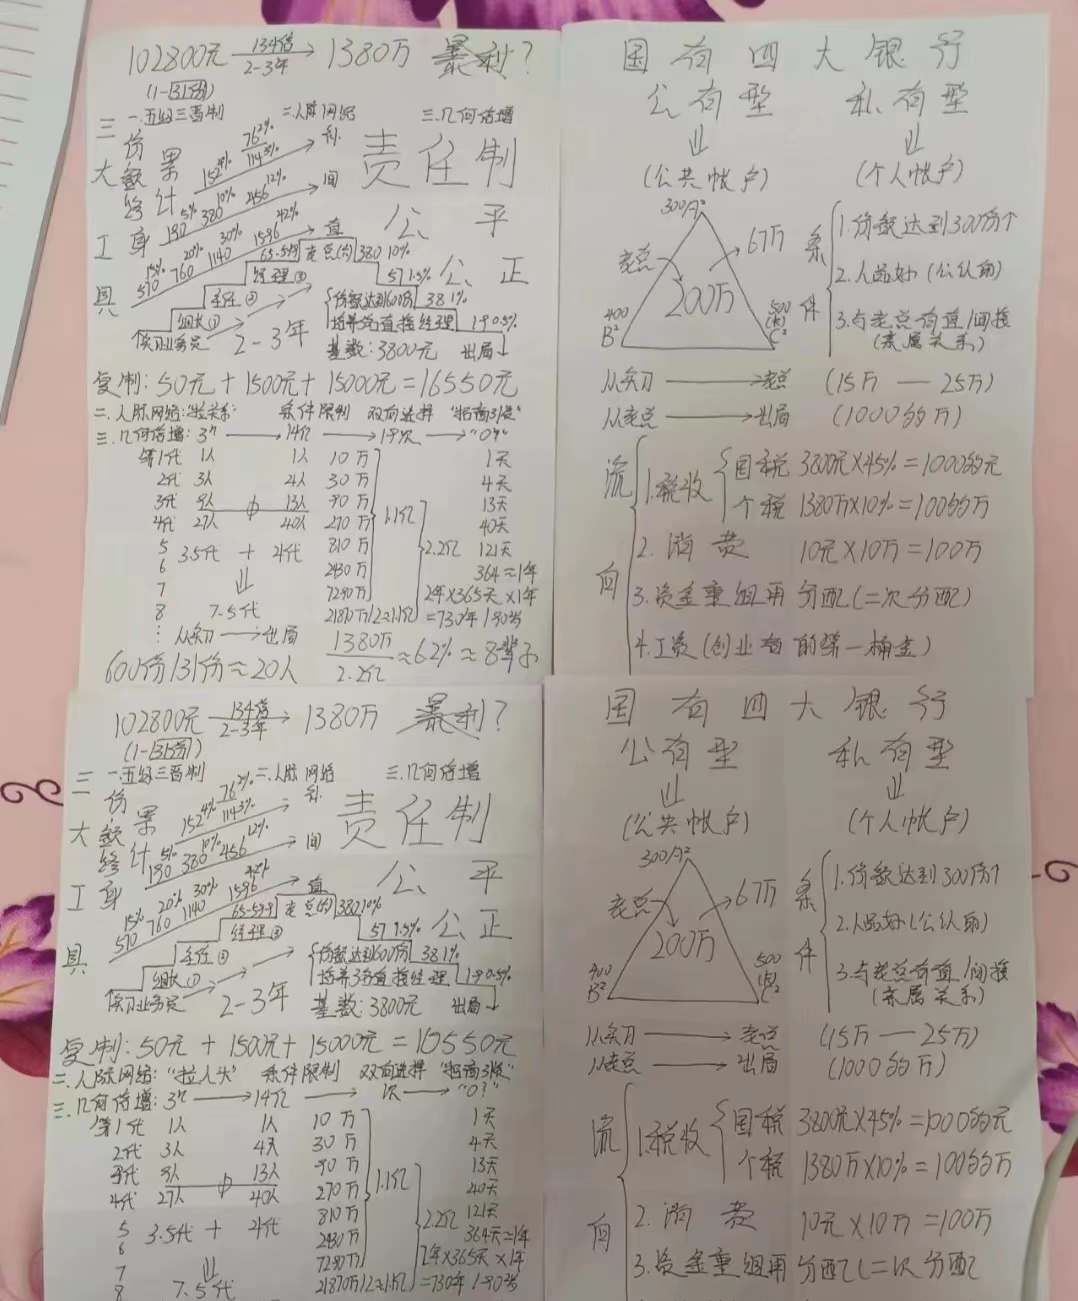 102800元 134倍 2-3年 1380万 暴利?
(1-131份)
三大终身工具
份额累计
一.五级三晋制 二.人脉网络 三.几何倍增
152 4% 76 2% 114 3%
5% 190 10% 380 12% 456 间
15% 570 20% 760 30% 1140 42% 1596 直
责任制
公、平
公、正
65-599 老总(约) 380 10%
经理③ 57 1.5%
主任② 份额达到600份 38 1%
组长① 培养3名直接经理 19 0.5%
实习业务员 2-3年 基数:3800元 出局
复制:50元+1500元+15000元=16550元
二.人脉网络:"拉关系" 条件限制 双向选择
三.几何倍增:3ⁿ 14亿 "0?"
第1代 1人 1人 10万 1天
2代 3人 4人 30万 4天
3代 9人 13人 90万 13天
4代 27人 40人 270万 40天
5 3.5代 + 4代 810万 1.1亿 2.2亿 121天
6 2430万 364≈1年
7 7290万 2年×365天×1年
8 7.5代 21870万/2≈1.1亿 =730年
从实习 出局 1380万/2.2亿 ≈6.2% ≈8辈子
600份/131份≈20人
国有四大银行
公有型 私有型
(公共帐户) (个人帐户)
300 A²
老总 200万 67万
400 B² 500 C²
条件
1.份额达到300份
2.人品好(公认的)
3.与老总有直/间接
(亲属关系)
从实习 老总 (15万—25万)
从老总 出局 (1000多万)
流向
1.税收 国税 3800元×45%=1000多元
个税 1380万×10%=100多万
2.消费 10元×10万=100万
3.资金重组再分配(二次分配)
4.工资(创业者的第一桶金)
102800元 134倍 2-3年 1380万 暴利?
(1-131份)
三大终身工具
份额累计
一.五级三晋制 二.人脉网络 三.几何倍增
152 4% 76 2% 114 3%
5% 190 10% 380 12% 456 间
15% 570 20% 760 30% 1140 42% 1596 直
责任制
公、平
公、正
65-599 老总(约) 380 10%
经理③ 57 1.5%
主任② 份额达到600份 38 1%
组长① 培养3名直接经理 19 0.5%
实习业务员 2-3年 基数:3800元 出局
复制:50元+1500元+15000元=16550元
二.人脉网络:"拉人头" 条件限制 双向选择
三.几何倍增:3ⁿ 14亿 次 "0?"
第1代 1人 1人 10万 1天
2代 3人 4人 30万 4天
3代 9人 13人 90万 13天
4代 27人 40人 270万 40天
5 3.5代 + 4代 810万 1.1亿 2.2亿 121天
6 2430万 364天≈1年
7 7290万 2年×365天×1年
8 7.5代 21870万/2≈1.1亿 =730年
国有四大银行
公有型 私有型
(公共帐户) (个人帐户)
300 A²
老总 200万 67万
400 B² 500 C²
条件
1.份额达到300份
2.人品好(公认的)
3.与老总有直/间接
(亲属关系)
从实习 老总 (15万—25万)
从老总 出局 (1000多万)
流向
1.税收 国税 3800元×45%=1000多元
个税 1380万×10%=100多万
2.消费 10元×10万=100万
3.资金重组再分配(二次分配